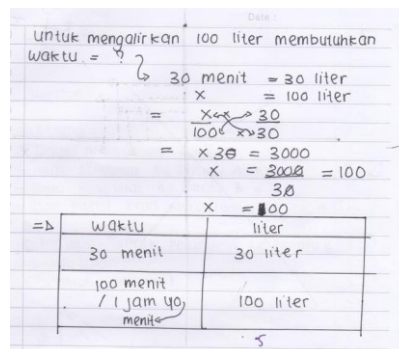 Date :
untuk mengalirkan 100 liter membutuhkan
waktu = ?
30 menit = 30 liter
x = 100 liter
= x 30
100 x 30
= x 30 = 3000
x = 3000 = 100
30
x = 100
=> waktu liter
30 menit 30 liter
100 menit 100 liter
/ 1 jam 40
menit
5